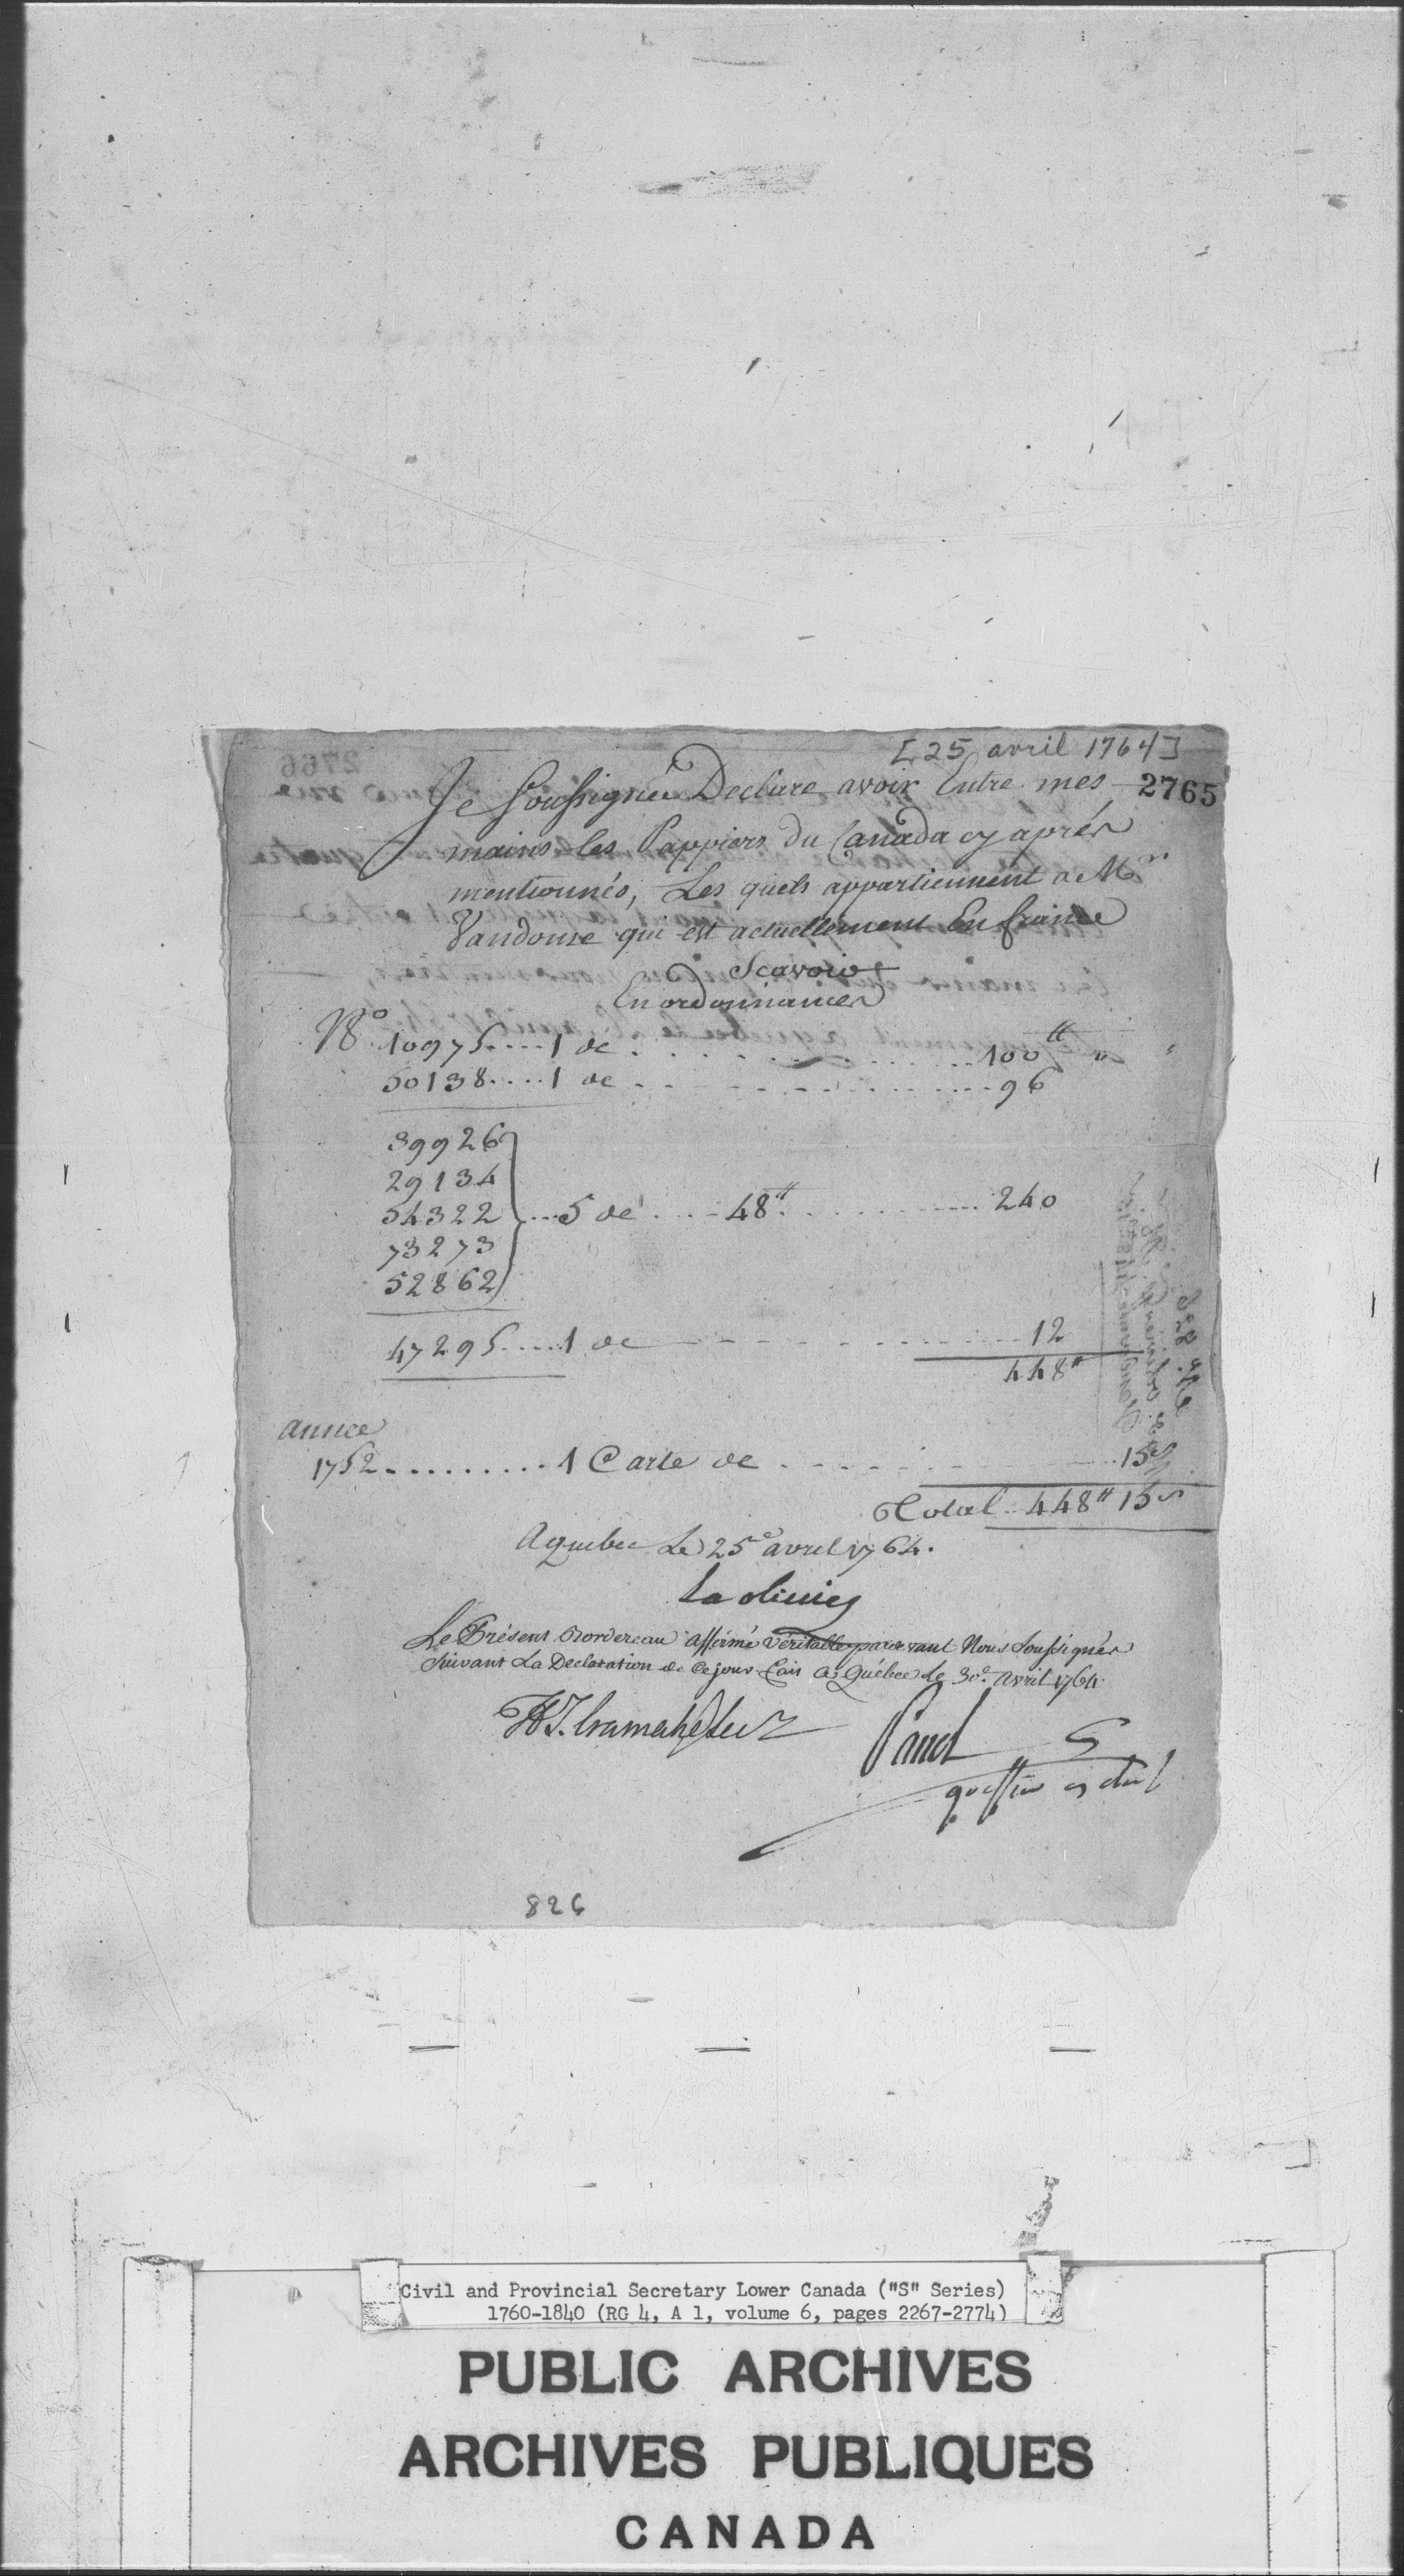 [25 avril 1764]
2765
Je Soussignée Declare avoir Entre mes
mains les Pappiers du Canada cy aprés
mentionnés, Les quels appartiennent a Mr
Vandome qui est actuellement En france
Scavoir
En ordonnances
No. 10975....1 de ........100tt " "
50138....1 de ........96
39926
29134
54322 }...5 de ....48tt ........240
73273
52862
47295....1 de ........12
448tt
année
1752..........1 Carte de ........15s
Total 448tt 15s
A quebec Le 25e avril 1764.
Le Présent Bordereau affirmé véritable pardevant Nous Soussignés
Suivant La Declaration de Ce jour. Fait a Québec Le 30e. Avril 1764.
Panet
826
Civil and Provincial Secretary Lower Canada ("S" Series)
1760-1840 (RG 4, A 1, volume 6, pages 2267-2774)
PUBLIC ARCHIVES
ARCHIVES PUBLIQUES
CANADA